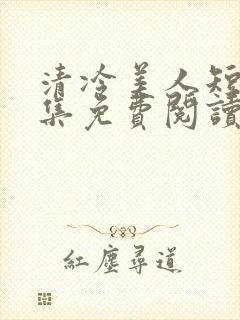 清冷美人短
集免費閱讀
紅塵尋道